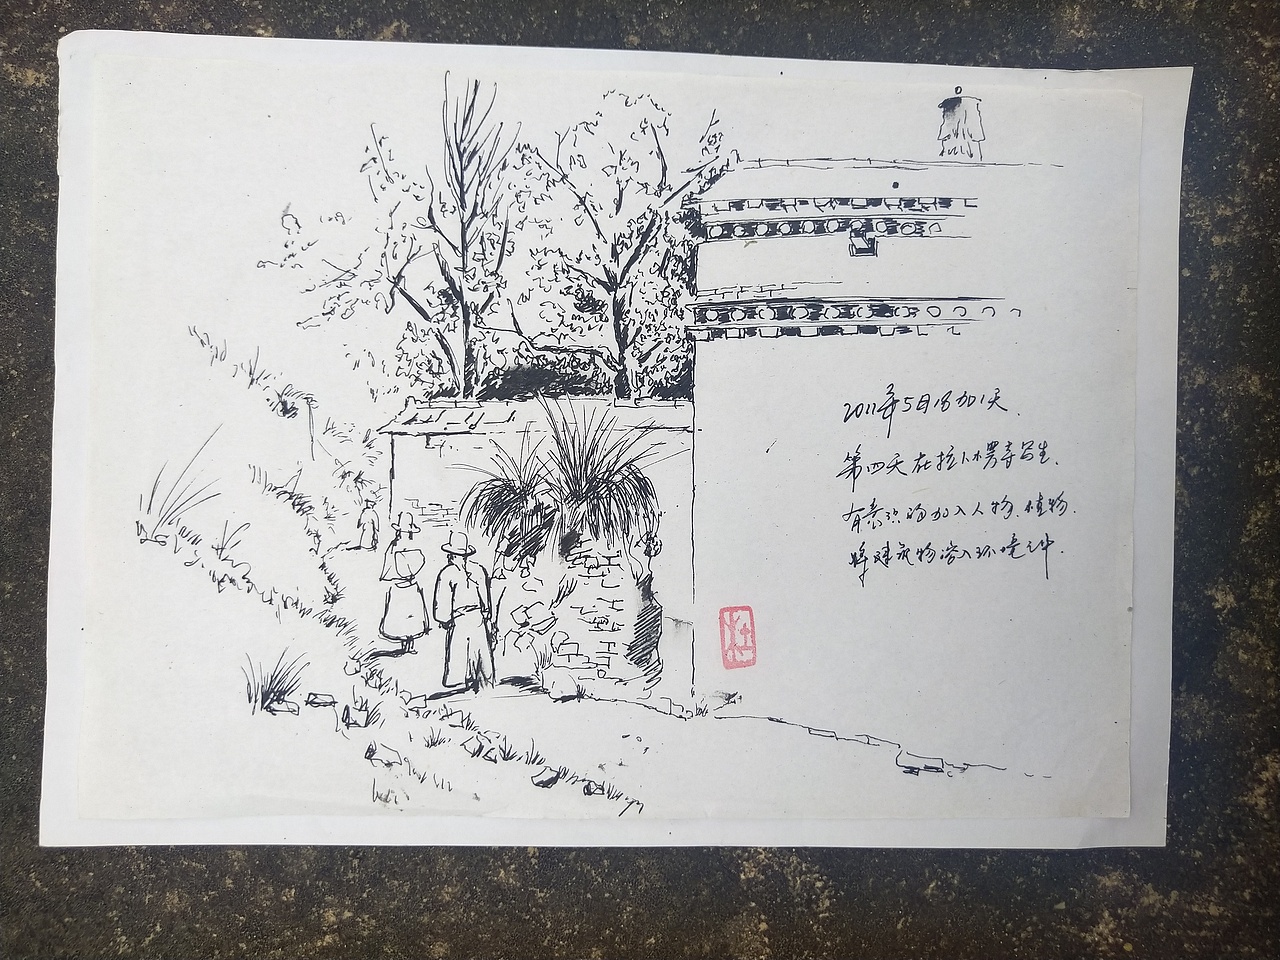 2011年5月18日加1天.
第四天在拉卜楞寺写生.
有意识的加入人物.植物.
将建筑物溶入环境之中.